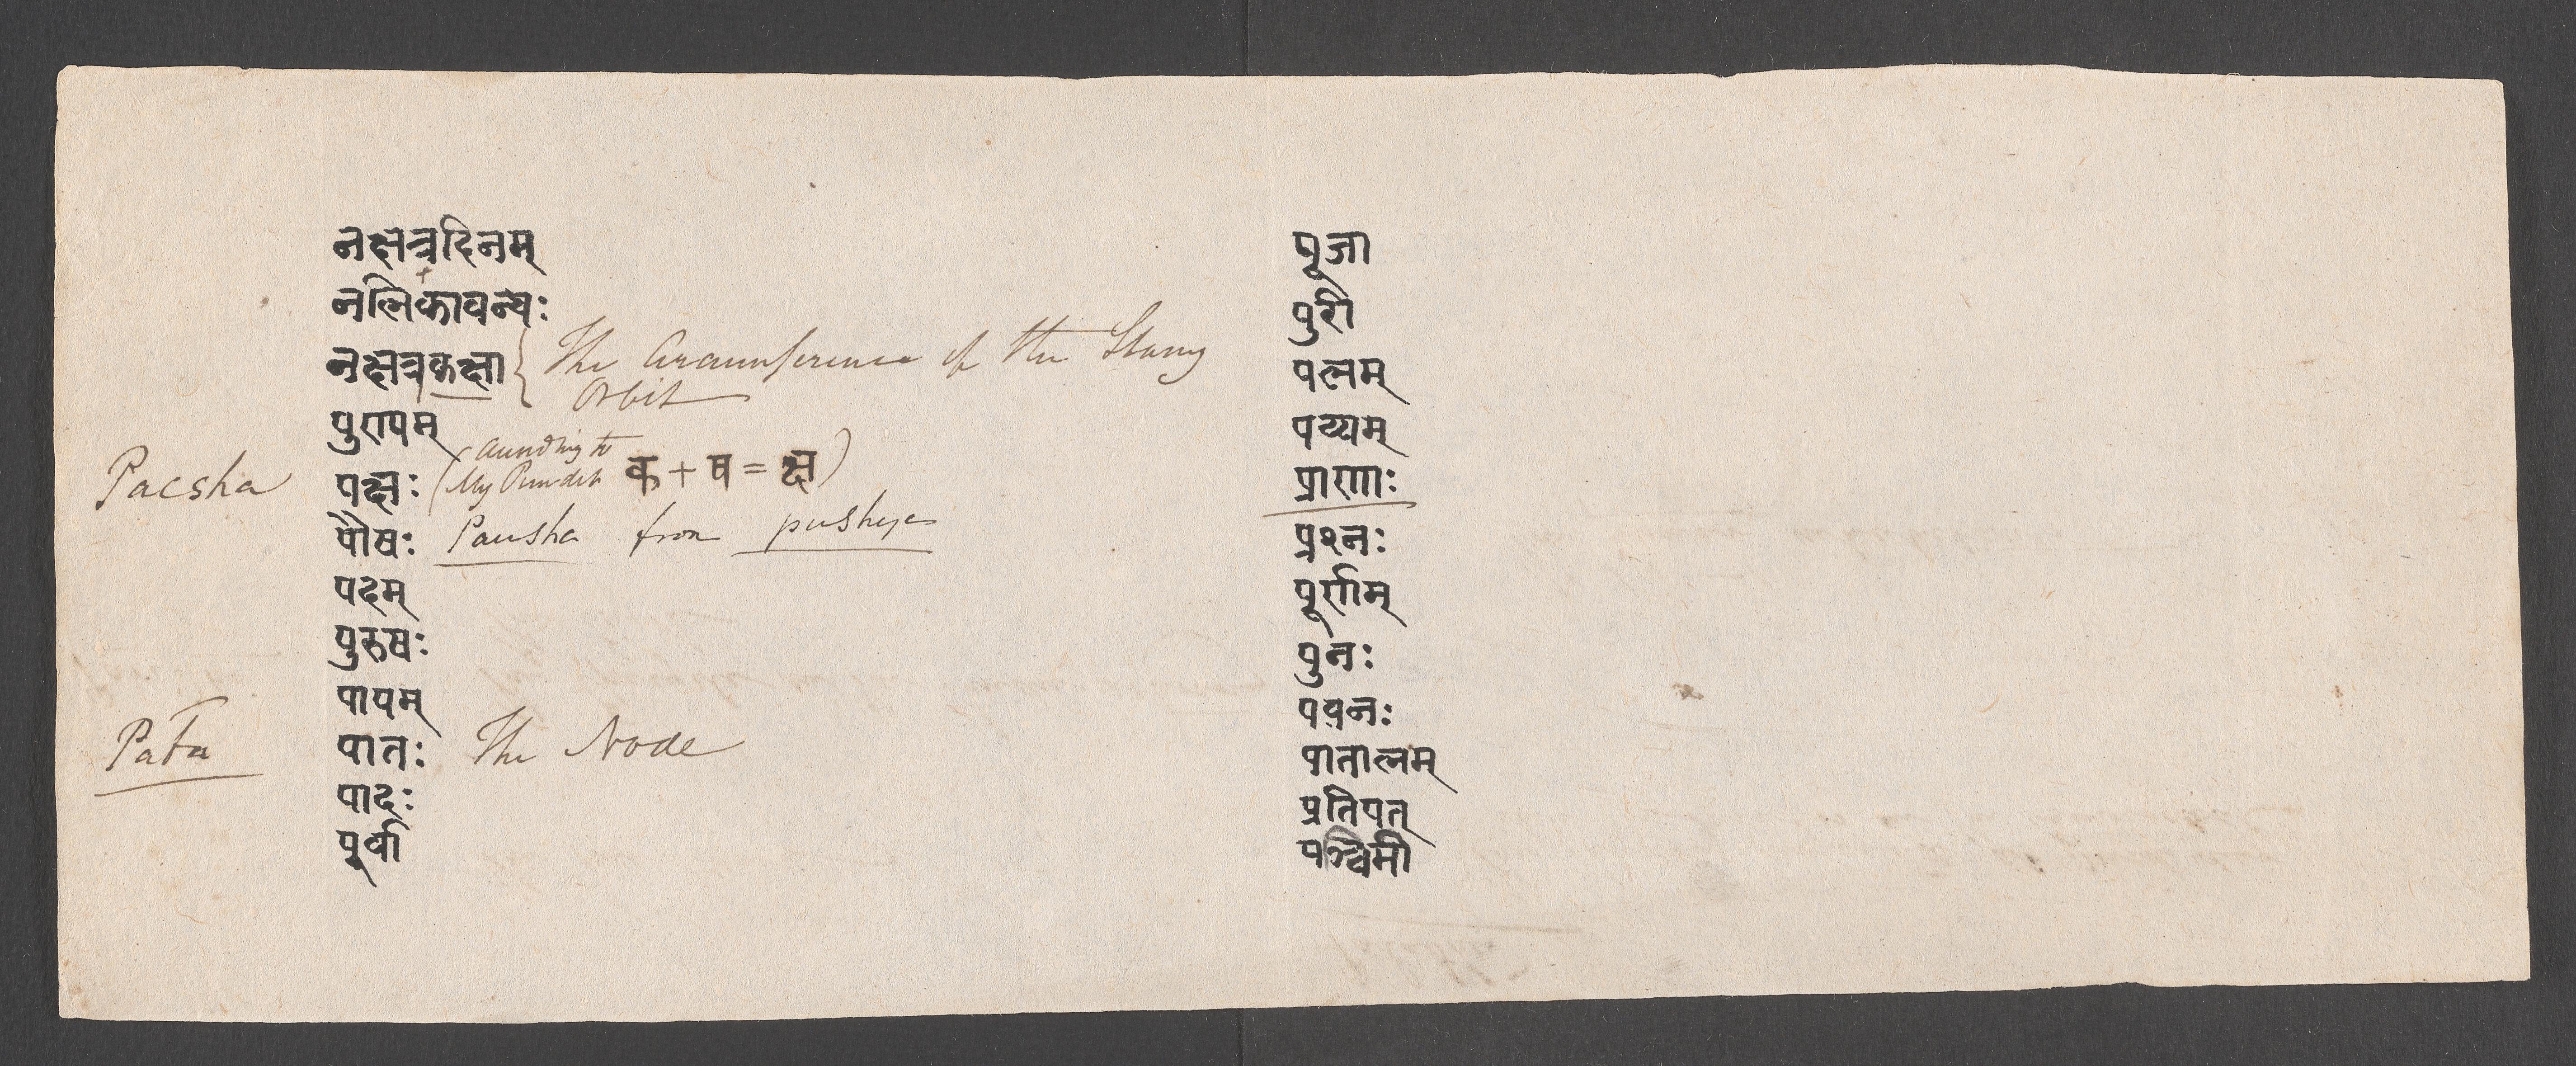 नक्षत्रदिनम्
नलिकाबन्धः
नक्षत्रकक्षा { The Circumference of the Starry
Orbit
पुरापम्
Pacsha पक्षः (according to My Pundit क + ष = क्ष)
पौषः Pausha from pushya
पदम्
पुरुषः
पापम्
Pata पातः The Node
पादः
पूर्वा
पूजा
पुरी
पलम्
प्राणः
प्रश्नः
पूर्णिम्
पुनः
पवनः
पातालम्
प्रतिपत्
पश्चिमी